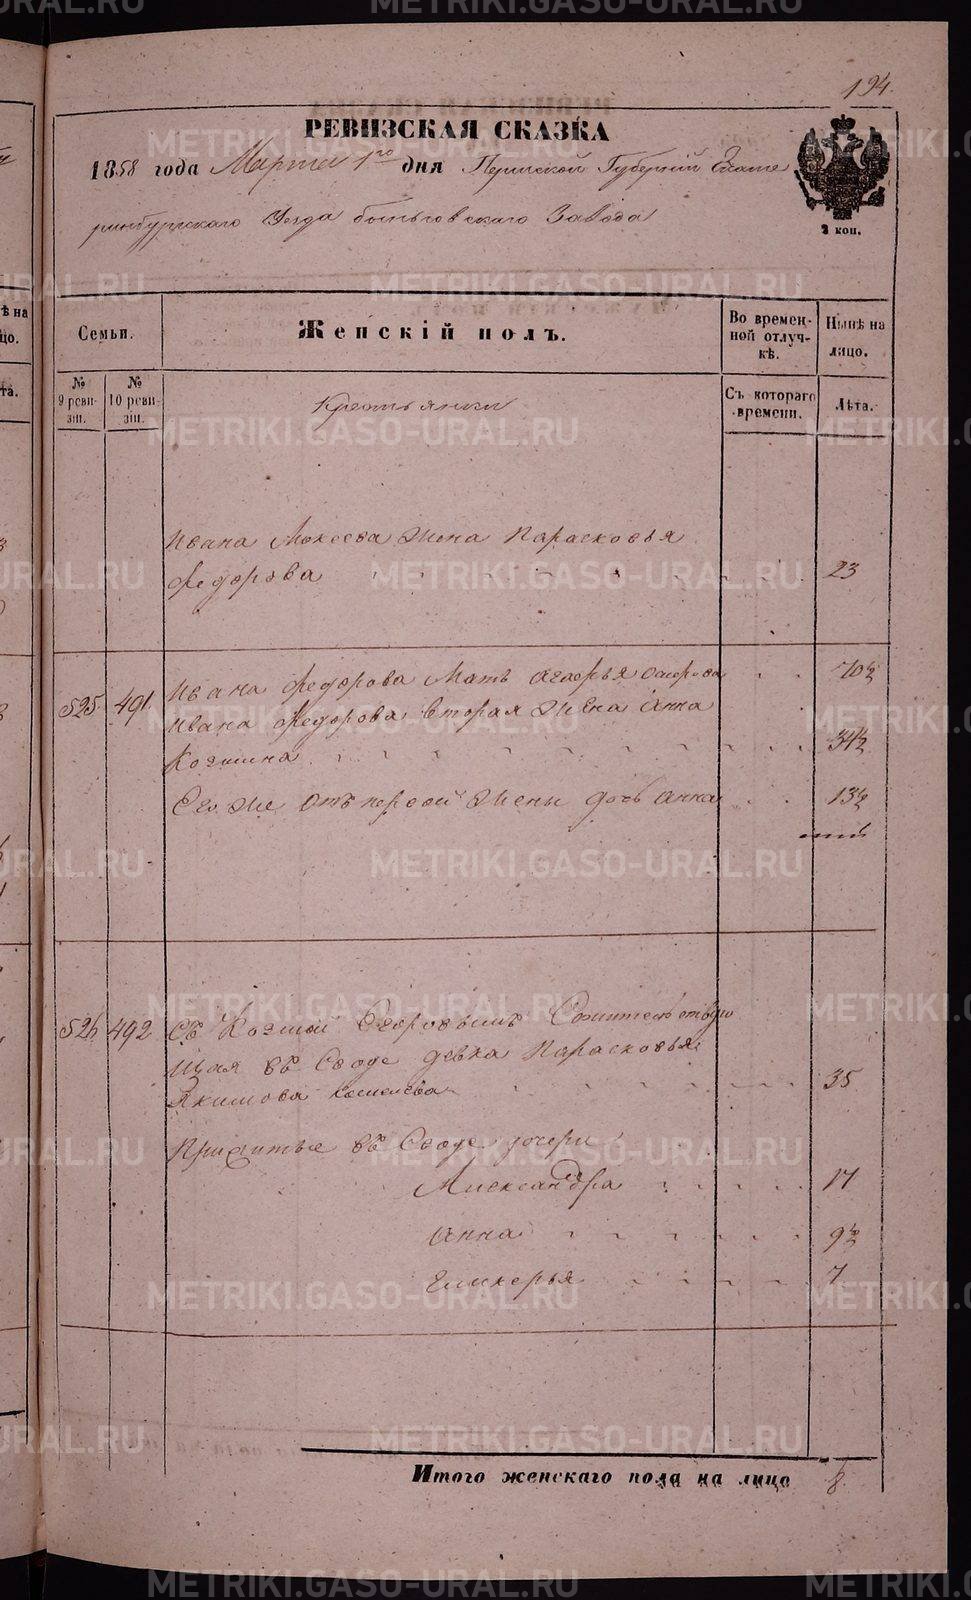 194.
РЕВИЗСКАЯ СКАЗКА
1858 года Марта 1го дня Пермской Губернiй Екате
ринбургскаго Уезда быньговскаго Завода
2 коп.
Семьи.
Женскiй полъ.
Во времен-
ной отлуч-
кѣ.
Нынѣ на
лицо.
№
9 реви-
зiи.
№
10 реви-
зiи.
Крестьянки
Съ котораго
времени.
Лѣта.
Ивана Мокеева жена Парасковья
Федорова 23
525 491 Ивана Федорова Мать Агафья 70½
Ивана Федорова вторая жена Анна
Козмина 34½
Его же отъ первой жены дочь Анна 13½
526 492 Съ Козмой Егоровымъ
щая въ Своде девка Парасковья
Якимова 35
Прижитые въ Своде дочери
Александра 17
Анна 9½
Гликерья 7
Итого женскаго пола на лицо 8
METRIKI.GASO-URAL.RU